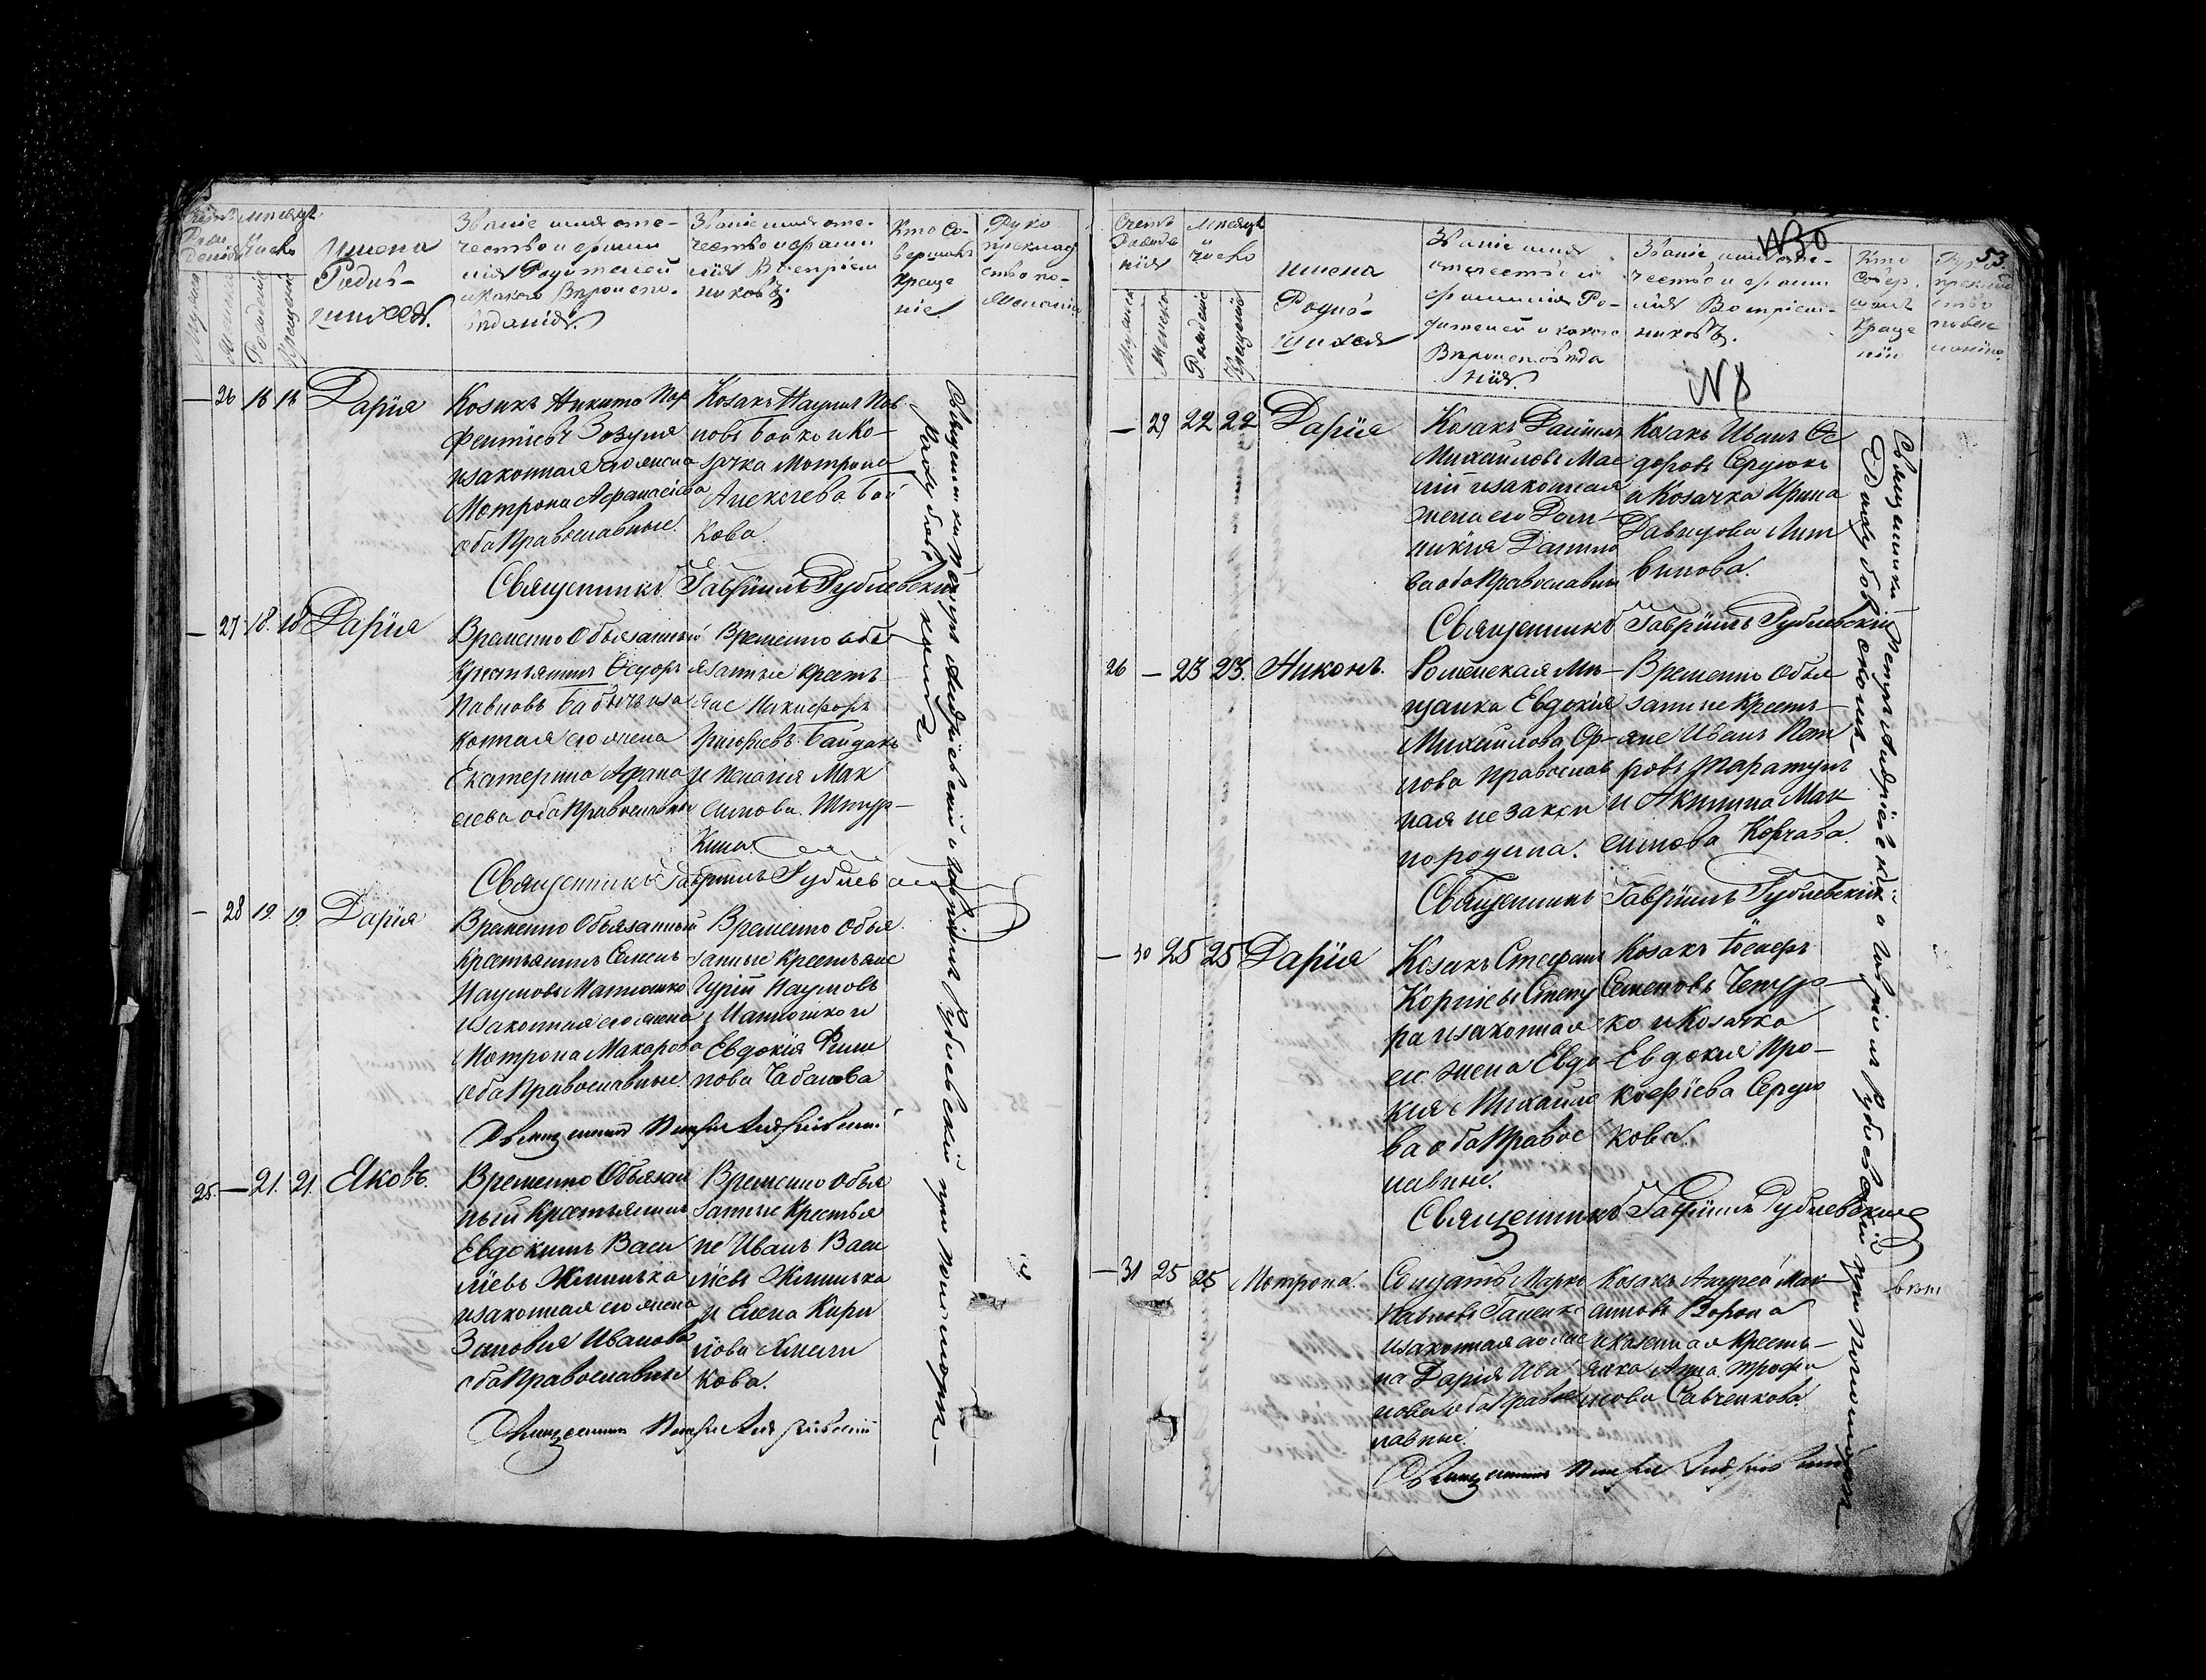 Счетъ Рожденія
Мѣсяцъ и число
Имена Родив-
шихся.
Званіе имя оте-
чество и фами
лія Родителей
и какого Вѣроиспо-
вѣданія.
Званіе имя оте-
чество и фами
лія Воспріем
никовъ.
Кто Со-
вершалъ
креще
ніе.
Руко
приклад
ство по-
желанію
Рожденіе
Крещеніе
— 26 18 18 Дарія
Козакъ Никита Пар
фентіевъ Зозуля
и законная его жена
Мотрона Афанасіева
оба Православные.
Козакъ Наумъ Пав
ловъ Бойко и Ко-
зачка Мотрона
Алексѣева Бой
кова.
Священникъ Гавріилъ Рублевскій
— 27 18. 18 Дарія
Временно Обязанный
Крестьянинъ Ѳедоръ
Павловъ Бабичъ и за
конная его жена
Екатерина Афана
сіева оба Православные
Временно обя
занные Крестъ
яне Никифоръ
Григоріевъ Байдакъ
и Пелагія Мак
симова Штур-
кина.
Священникъ Гавріилъ Рублевскій
— 28 19. 19. Дарія
Временно Обязанный
Крестьянинъ Семенъ
Наумовъ Матюшко
и законная его жена
Мотрона Макарова
оба Православные
Временно Обя
занные Крестьяне
Гурій Наумовъ
Матюшко и
Евдокія Фили
пова Чабанова
Священникъ Петръ Андріевскій
25 — 21. 21. Яковъ.
Временно Обязан
ный Крестьянинъ
Евдокимъ Васи
ліевъ Жминька
и законная его жена
Зиновія Иванова
оба Православные
Временно обя
занные Крестья
не Иванъ Васи
ліевъ Жминька
и Елена Кири
лова
кова.
Священникъ Петръ Андріевскій
Священники Петръ Андріевскій и Гавріилъ Рублевскій при
53
№30
Счетъ
Рожде
нія
Мѣсяцъ
и
число
Имена
Родив-
шихся
Званіе имя
отечество и
фамилія Ро-
дителей и какого
Вѣроисповѣда
нія.
Званіе имя оте-
чество и фами
лія Воспріем-
никовъ.
Кто
Совер-
шалъ
Креще
ніе
№ 8
Рожденіе
Крещеніе
— 29 22 22 Дарія
Козакъ Даніилъ
Михайловъ Мас
лій и законная
жена его Дом-
никія Данило
ва оба Православны
Козакъ Иванъ Ѳе
доровъ Сердюкъ
и Козачка Ирина
Давидова Лит
винова.
Священникъ Гавріилъ Рублевскій
26 — 23 23. Никонъ.
Роменская Мѣ-
щанка Евдокія
Михайлова Ор-
лова Православ
ная незакон
но родила.
Временно Обя
занные Кресть-
яне Иванъ Пет
ровъ Таратунъ
и Акилина Мак
симова Корчава.
Священникъ Гавріилъ Рублевскій
— 30 25 25 Дарія
Козакъ Стефанъ
Корніевъ
и законная
его жена Евдо
кія Михайло
ва оба Правос
лавные.
Козакъ
Семеновъ
ко и Козачка
Евдокія Про-
кофіева Сердю
кова.
Священникъ Гавріилъ Рублевскій
— 31 25 25 Мотрона.
Солдатъ Марко
Павловъ Ганенко
и законная его же
на Дарія Ива
нова оба Правос
лавные.
Козакъ Андрей Мак
симовъ Ворона
и Казенная Кресть-
янка Анна Трофи
мова Савченкова.
Священникъ Петръ Андріевскій
Священники Петръ Андріевскій и Гавріилъ Рублевскій при